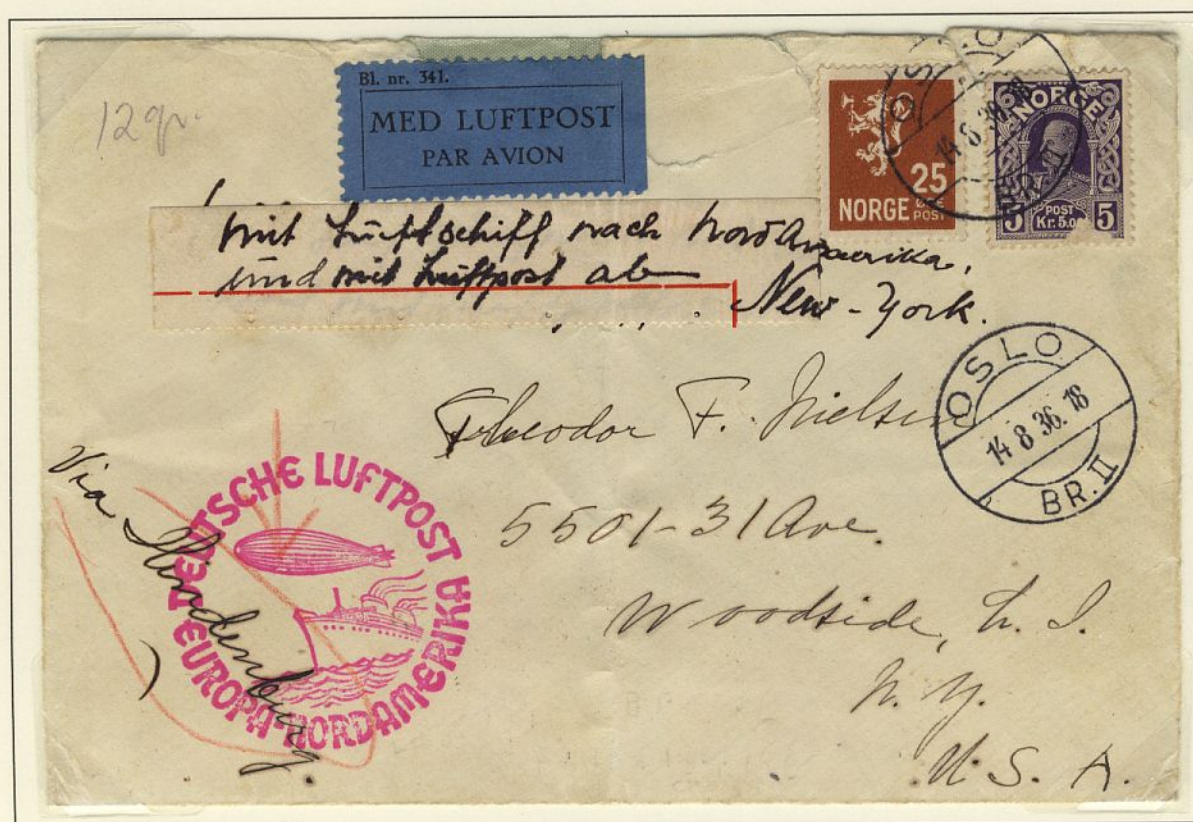 12 gr.
Bl. nr. 341.
MED LUFTPOST
PAR AVION
25
ØRE
POST
NORGE
NORGE
5
POST
Kr. 5.0
5
OSLO
14 8 36. 18
BR. II
mit Luftschiff nach Nord Amerika,
und mit Luftpost ab
New-York.
OSLO
14 8 36. 18
BR. II
Theodor F. Nielsen
5501-31 Ave.
Woodside, L. I.
N. Y.
U. S. A.
Via Hindenburg.
DEUTSCHE LUFTPOST
EUROPA-NORDAMERIKA